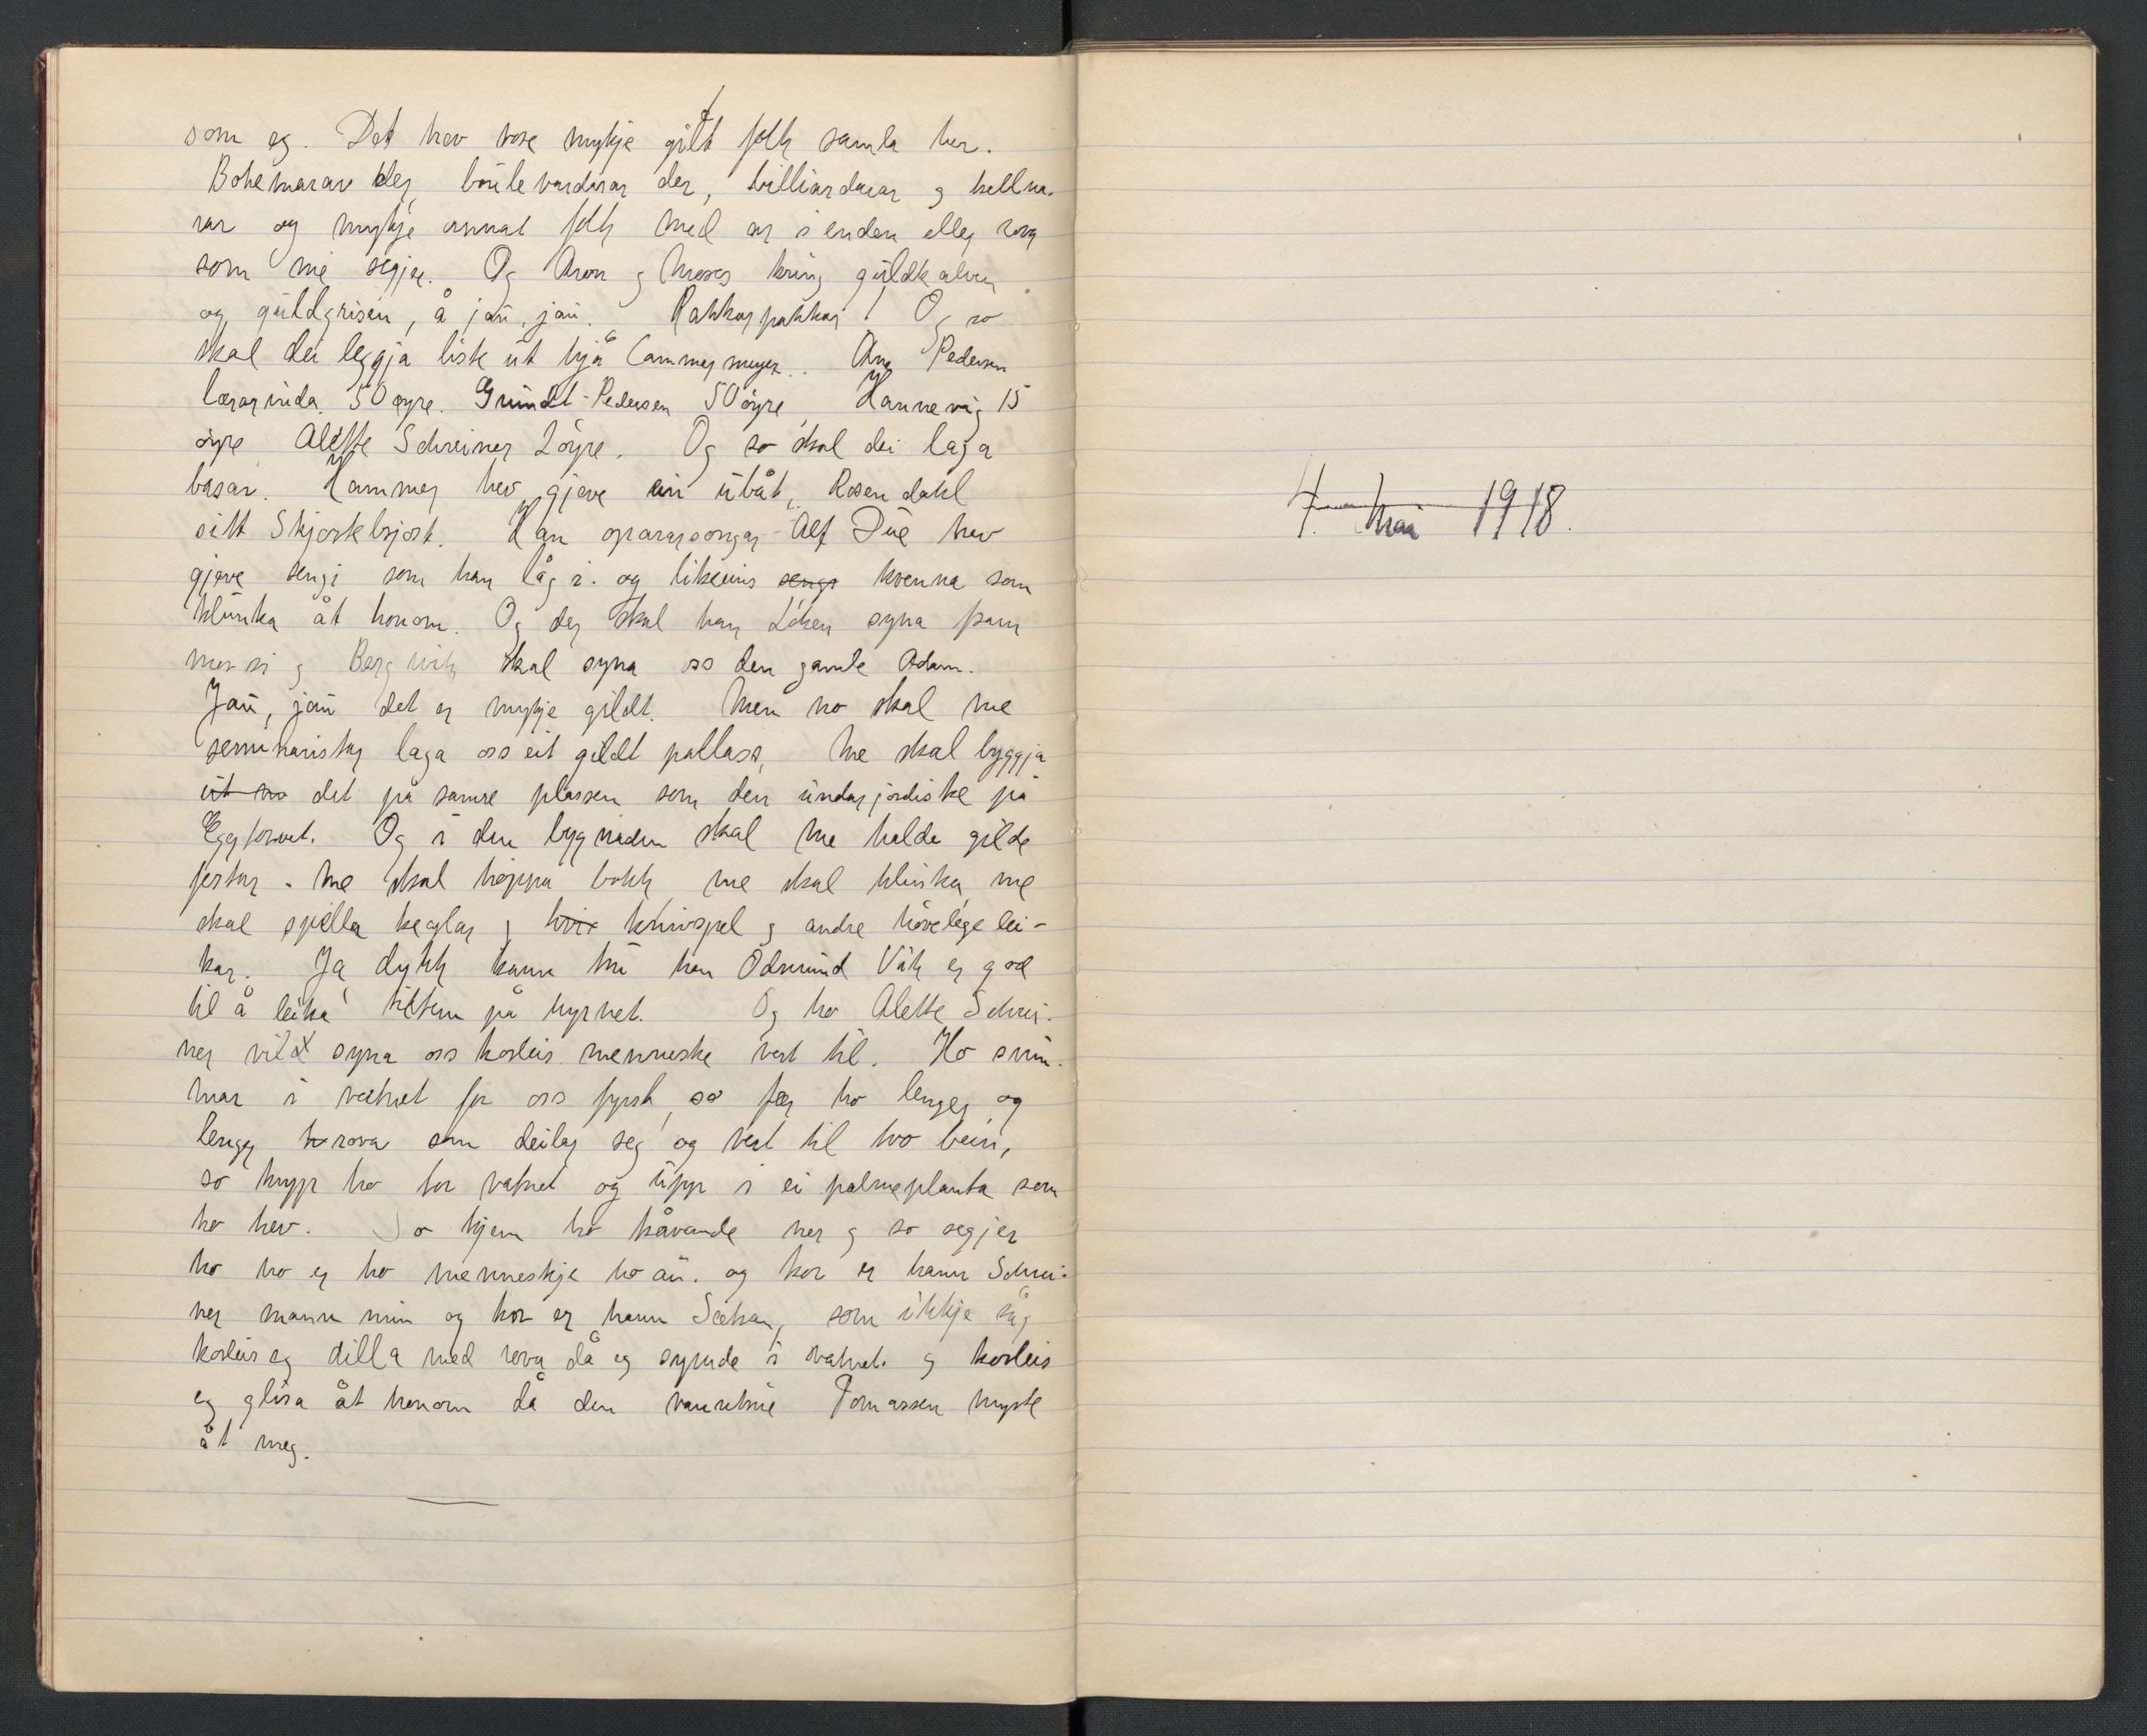 som eg. Det hev vore mykje gilt folk samla her.
Bohemarar der, boulevardirar der, billiardarar og kellna-
rar og mykje annat folk med ar i enden eller rova
som me segjer. Og Aron og Moses kring gullkalven
og gullgrisen, å jau, jau. Rakkarpakkar! Og so
skal dei leggja liste ut hjå Cammermeyer.. Ane Pedersen
lærarinda 50 øyre. Grundt-Pedersen 50 øyre, Hannevig 15
øyre Alette Schreiner 2 øyre. Og so skal dei laga
basar. Hammer hev gjeve ein ubåt, Rosendahl
sitt Skjortebrjost. Han operasongar Alf Due hev
gjeve sengi som han låg i. og likeeins senga kvenna som
klunka åt honom. Og der skal han Löken syna fram
mor si og Bergwitz skal syna oss den gamle Adam.
Jau, jau det er mykje gildt. Men no skal me
seminaristar laga oss eit gildt pallass, Me skal byggja
ut no det på samre plassen som den undarjordiske på
Eggtorvet. Og i den bygnaden skal me halda gilde
festar. Me skal hoppa bokk me skal klinka, me
skal spella keglar og knivspel og andre hövelege lei-
kar. Ja dykk kann tru han Odmund Vik er god
til å leika tittein på hyrnet. Og ho Alette Schrei-
ner vild syna oss korleis menneske vart til. Ho sym-
mar i vatnet for oss fyrst, so fær ho lenger og
lenger rova som deilar seg og vert til tvo bein,
so kryp ho tor vatnet og upp i ei palmeplanta som
ho hev. So kjem ho kåvande ner og so segjer
ho ho er ho menneskje ho au. og kor er hann Schrei-
ner mann min og kor er hann Sætran, som ikkje såg
korleis eg dilla med rova då eg symde i vatnet. og korleis
eg glisa åt honom då den vanntrue Tomassen myste
åt meg.
4. mai 1918.